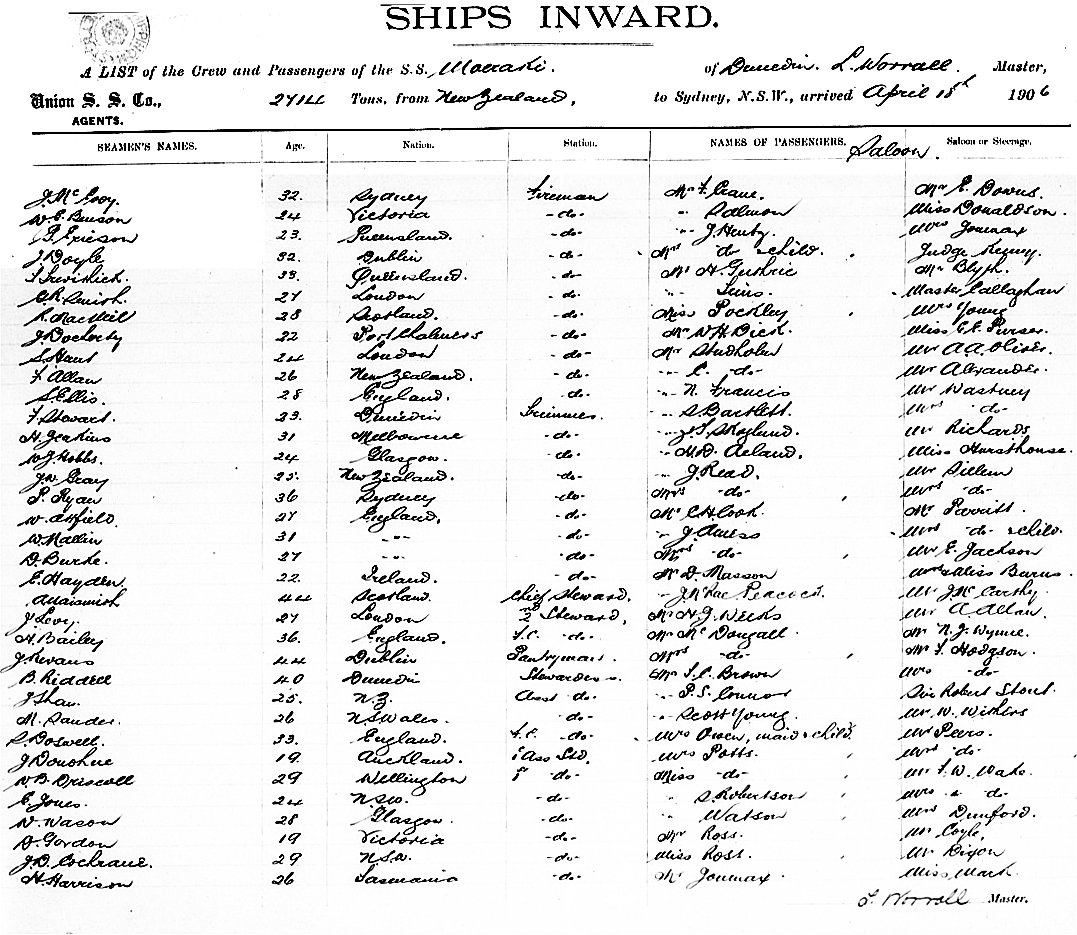 SHIPS INWARD.
A LIST of the Crew and Passengers of the S.S. Moeraki. of Dunedin. L. Worrall. Master,
Union S. S. Co., 2714 Tons, from New Zealand, to Sydney, N.S.W., arrived April 18th 1906
AGENTS.
SEAMEN'S NAMES. Age. Nation. Station. NAMES OF PASSENGERS. Saloon. Saloon or Steerage.
J. McEvoy. 32. Sydney Fireman Mr F. Crane. Mr E. Downs.
W.E. Benson 24 Victoria -do- " Salmon Miss Donaldson.
P. Ericson 23. Queensland. -do- " J. Henty. Mrs Jonmax
J. Doyle 32. Dublin -do- Mrs do & child. Judge
33. Queensland. -do- Mr H. Guthrie Mr Blyth.
C.R. Smith. 27 London -do- " Sims. Master Callaghan
R. MacNeil 28 Scotland. -do- Miss Pockley Mrs Young
J. Docherty 22 Port Chalmers -do- Mr W.H. Dick. Miss E.E. Purser.
S. Hant 24 London -do- Mr Studholm Mr A.A. Oliver.
F. Allan 26 New Zealand. -do- " C. -do- Mr Alexander.
S. Ellis. 28 England. -do- " N. Francis Mr Wastney
F. Stewart. 33. Dunedin Trimmer. " S. Bartlett. Mrs -do-
H. Jenkins 31 Melbourne -do- Mr Richards
W.J. Hobbs. 24 Glasgow. -do- " H.D. Acland. Miss Hursthouse.
J.W. Gray 25. New Zealand. -do- " J. Read. Mr Sillem
P. Ryan 36 Sydney -do- Mrs -do- Mrs -do-
W. Atfield. 27 England. -do- Mr C.H. Cook. Mr Parritt.
W. Mallin 31 " " -do- " J. Amess Mrs -do- & child.
D. Burke. 27 " " -do- Mrs -do- Mr E. Jackson
E. Hayden. 22. Ireland. -do- Mr D. Masson Mrs & Miss Burns.
44 Scotland. Chief Steward. " J. McRae Peacock. Mr J. McCarthy.
J. Levy. 27 London 2nd Steward. Mr H.J. Weeks Mr A. Allan.
H. Bailey 36. England. F.C. -do- Mr McDougall Mr N.J. Wynne.
J. Kevans 44 Dublin Pantryman. Mrs -do- Mr F. Hodgson.
B. Riddell 40 Dunedin Stewardess. Mr F.C. Brown Mrs -do-
J. Shaw. 25. N.Z. Asst do- " P.S. Connor Sir Robert Stout
M. Sander. 26 N.S Wales. -do- " Scott Young. Mr W. Withers
R. Doswell. 33. England. F.C. -do- Mrs Owen, maid & child. Mr Peers.
J. Donohue 19. Auckland. Ass Std. Mrs Potts. Mrs -do-
W.B. Driscoll 29 Wellington -do- Miss -do- Mr F.W. Wake.
E. Jones. 24 N.S.W. -do- " S. Robertson Mrs " do-
W. Wason 28 Glasgow. -do- " Watson Mrs Dunford.
D. Gordon 19 Victoria -do- Mr Ross. Mr Coyle.
J.D. Cochrane. 29 N.S.W. -do- Miss Ross. Mr Dixon
H. Harrison 26 Tasmania -do- Mr Jonmax Miss Mark.
L. Worrall Master.